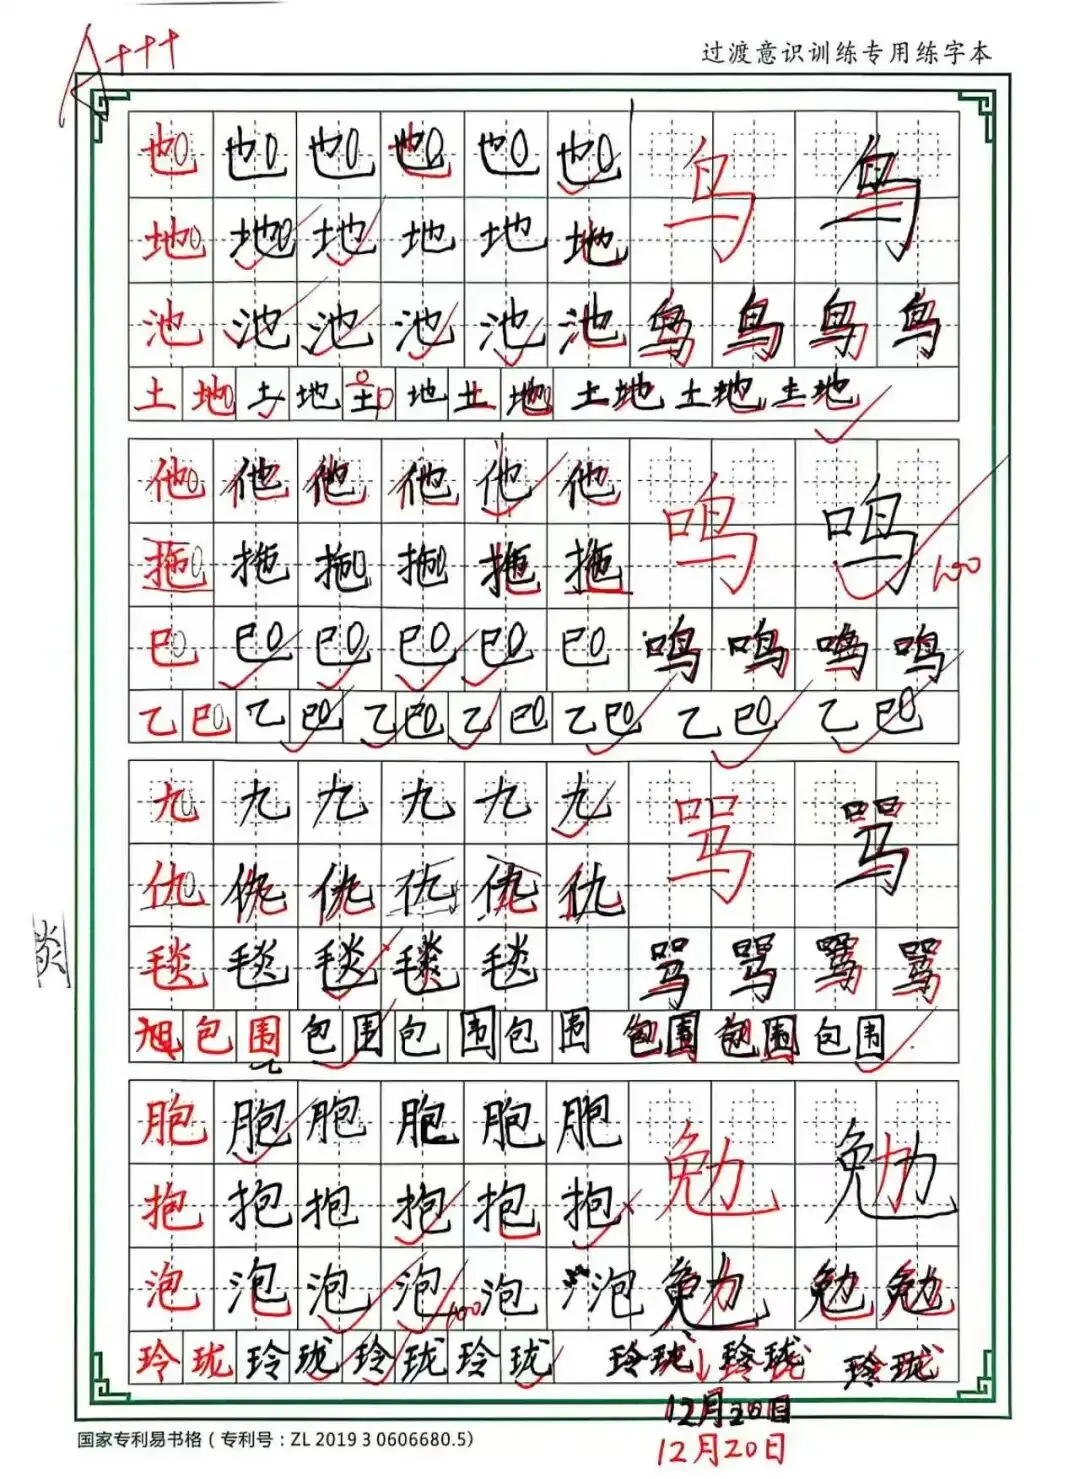 A+++
过渡意识训练专用练字本
也 也 也 也 也 也 鸟 鸟
地 地 地 地 地 地
池 池 池 池 池 池 鸟 鸟 鸟 鸟
土 地 土 地 土 地 土 地 土地 土地 土地
他 他 他 他 他 他 鸣 鸣
拖 拖 拖 拖 拖 拖 100
巳 巳 巳 巳 巳 巳 鸣 鸣 鸣 鸣
乙 巳 乙 巳 乙 巳 乙 巳 乙 巳 乙 巳 乙 巳
九 九 九 九 九 九 骂 骂
仇 仇 仇 仇 仇 仇
炎
毯 毯 毯 毯 毯 骂 骂 骂 骂
旭 包 围 包 围 包 围 包 围 包围 包围 包围
胞 胞 胞 胞 胞 胞 勉 勉
抱 抱 抱 抱 抱 抱
泡 泡 泡 泡 100 泡 泡 勉 勉 勉
玲 珑 玲 珑 玲 珑 玲 珑 玲珑 玲珑 玲珑
12月20日
12月20日
国家专利易书格（专利号：ZL 2019 3 0606680.5）